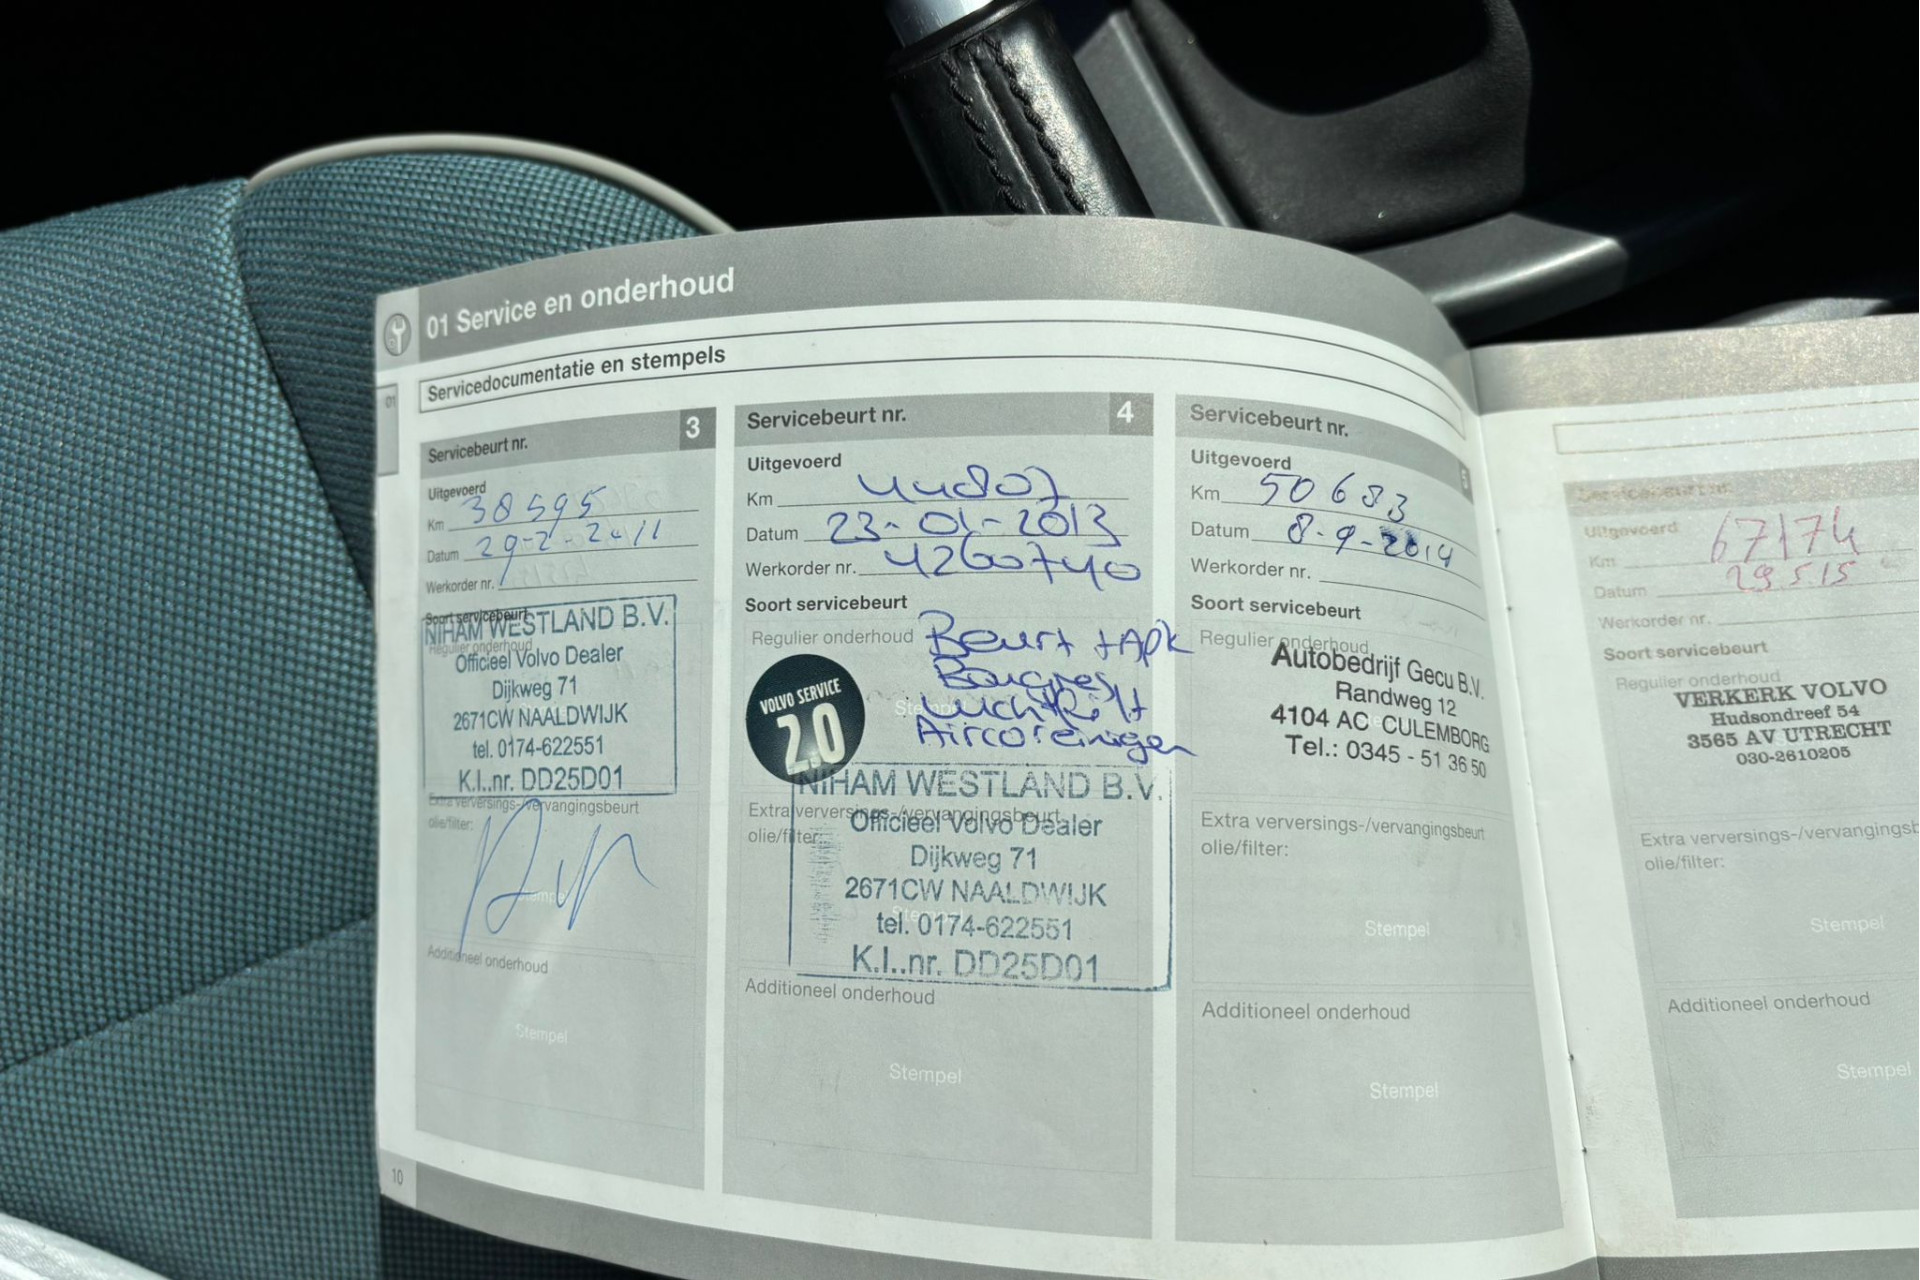 01 Service en onderhoud
Servicedocumentatie en stempels
01
Servicebeurt nr. 3
Uitgevoerd
Km 38595
Datum 29-2-2011
Werkorder nr.
Soort servicebeurt
NIHAM WESTLAND B.V.
Regulier onderhoud
Officieel Volvo Dealer
Dijkweg 71
2671CW NAALDWIJK
tel. 0174-622551
K.I..nr. DD25D01
Extra verversings-/vervangingsbeurt
olie/filter:
Stempel
Additioneel onderhoud
Stempel
10
Servicebeurt nr. 4
Uitgevoerd
Km 44807
Datum 23-01-2013
Werkorder nr. 4260740
Soort servicebeurt
Regulier onderhoud Beurt + Apk
Stempel
Luchtfilt
Aircoreinigen
VOLVO SERVICE
2.0
NIHAM WESTLAND B.V.
Extra verversings-/vervangingsbeurt
olie/filter:
Officieel Volvo Dealer
Dijkweg 71
2671CW NAALDWIJK
Stempel
tel. 0174-622551
K.I..nr. DD25D01
Additioneel onderhoud
Stempel
Servicebeurt nr. 5
Uitgevoerd
Km 50683
Datum 8-9-2014
Werkorder nr.
Soort servicebeurt
Regulier onderhoud
Autobedrijf Gecu B.V.
Randweg 12
4104 AC CULEMBORG
Tel.: 0345 - 51 36 50
Extra verversings-/vervangingsbeurt
olie/filter:
Stempel
Additioneel onderhoud
Stempel
Servicebeurt nr.
Uitgevoerd
Km 67174
Datum 29.5.15
Werkorder nr.
Soort servicebeurt
Regulier onderhoud
VERKERK VOLVO
Hudsondreef 54
3565 AV UTRECHT
030-2610205
Extra verversings-/vervangingsb
olie/filter:
Stempel
Additioneel onderhoud
Stempel